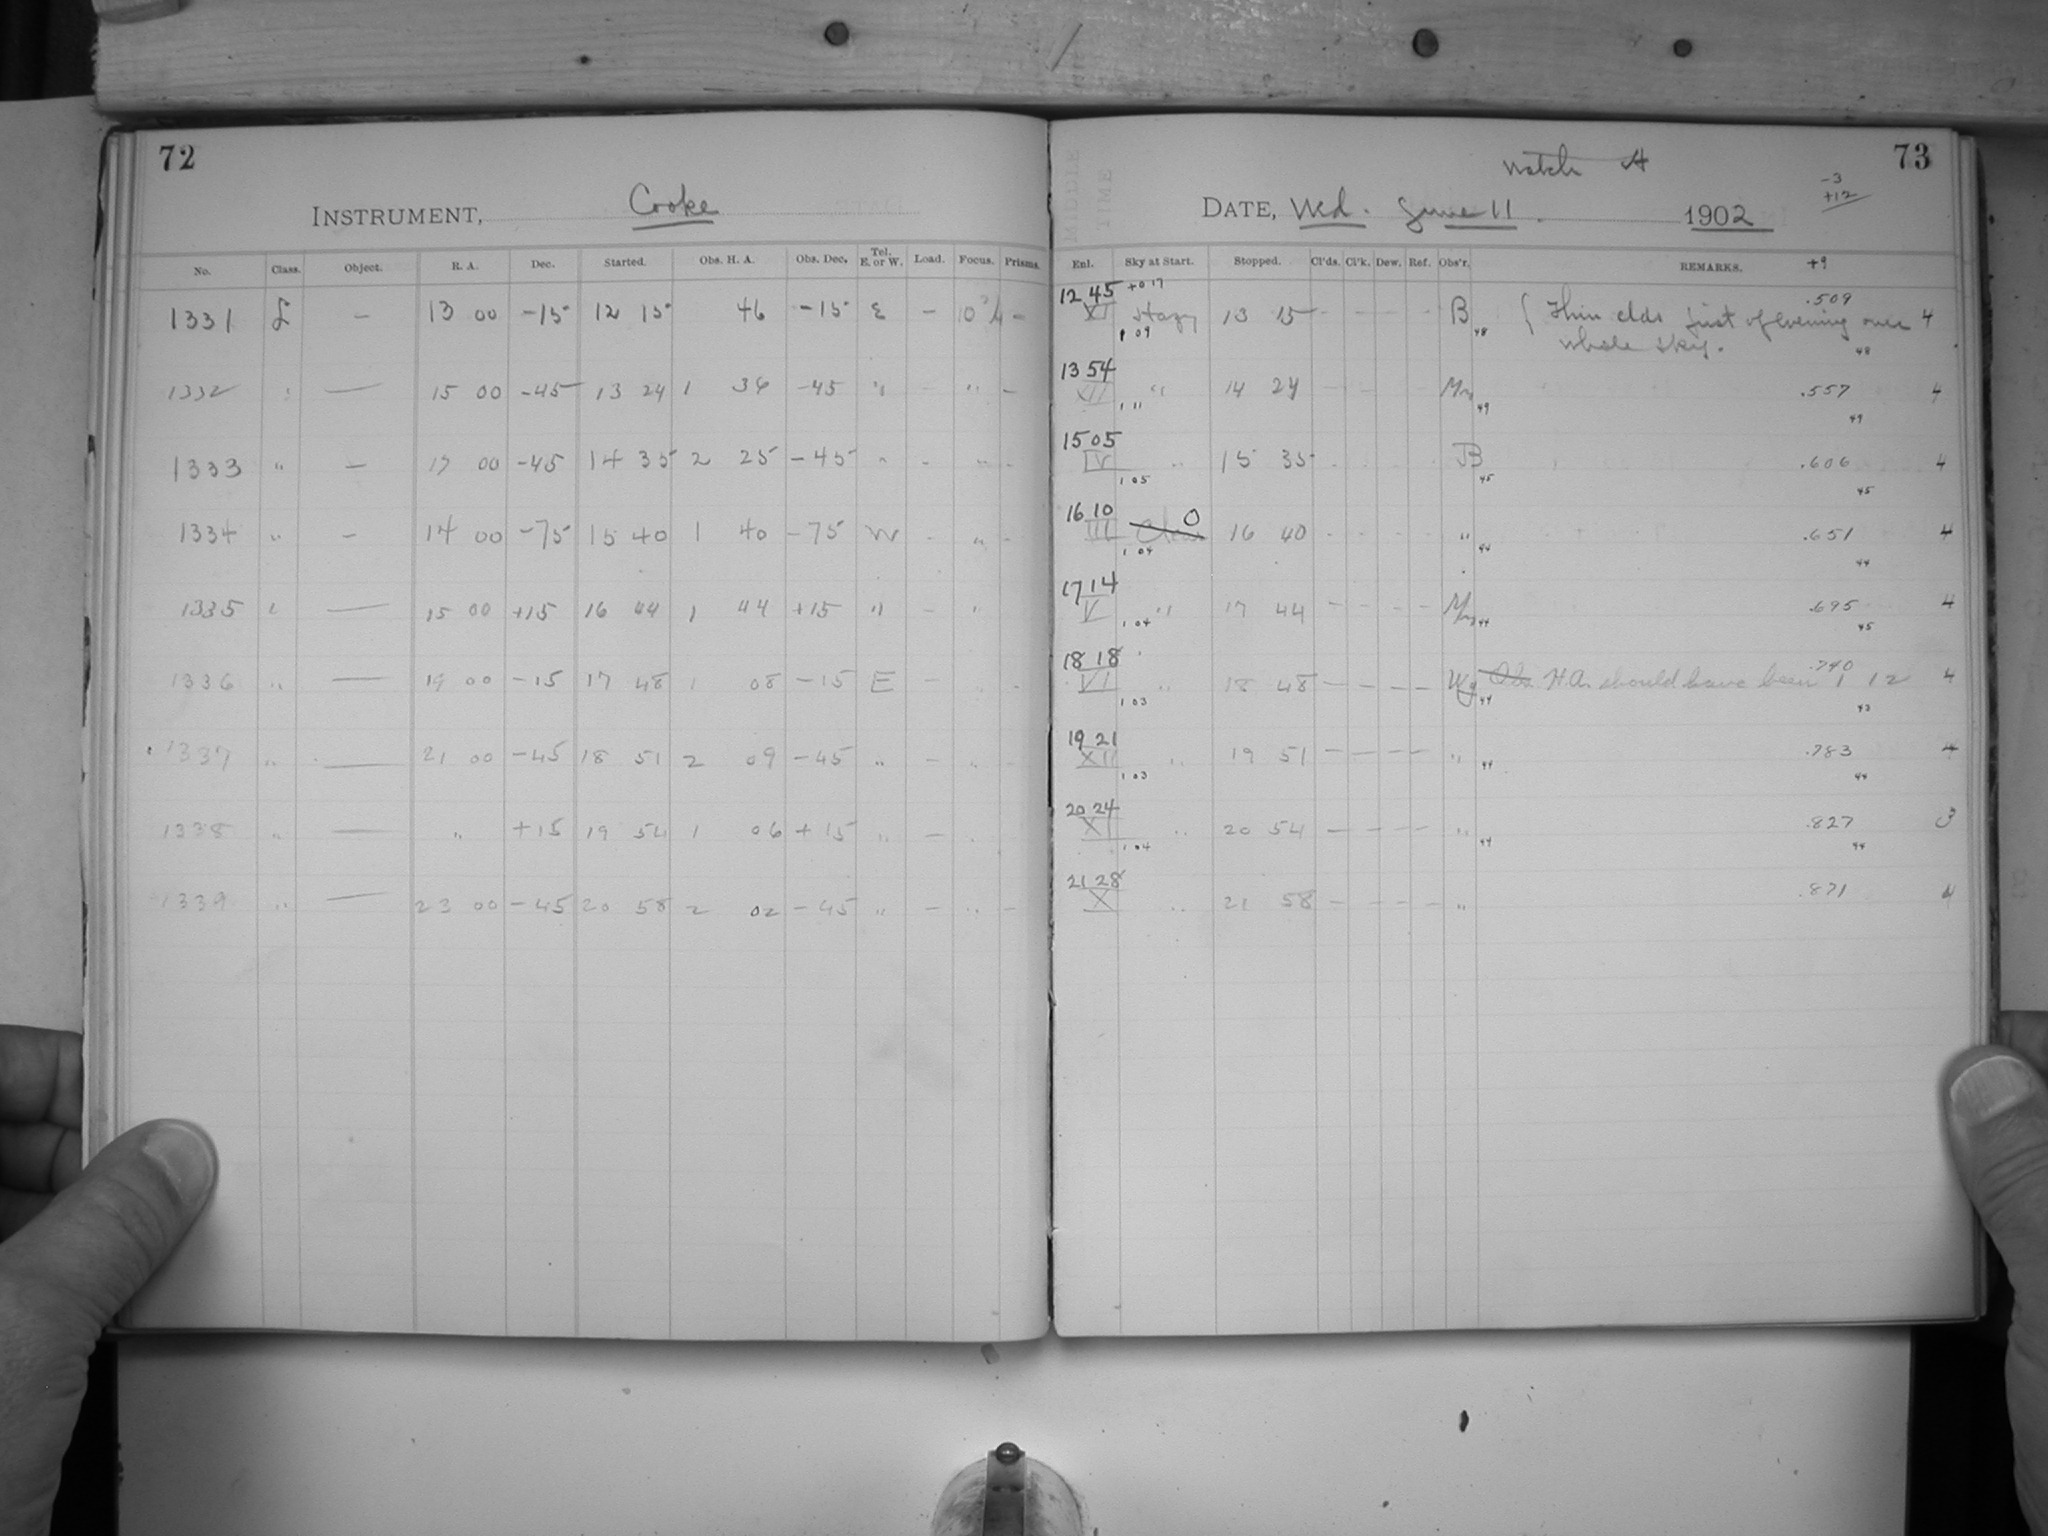 72
INSTRUMENT, Cooke
No. Class. Object. R. A. Dec. Started. Obs. H. A. Obs. Dec. Tel. E. or W. Load. Focus. Prisms.
1331 £ — 13 00 -15 12 15 46 -15 E — 10 3/4 —
1332 — 15 00 -45 13 24 1 36 -45 " - " -
1333 " — 17 00 -45 14 35 2 25 -45 " - " -
1334 " — 14 00 -75 15 40 1 40 -75 W - " -
1335 — 15 00 +15 16 44 1 44 +15 " - "
1336 " — 19 00 -15 17 48 1 08 -15 E —
1337 " — 21 00 -45 18 51 2 09 -45 " —
1338 " — " +15 19 54 1 06 +15 " —
1339 " — 23 00 -45 20 58 2 02 -45 " — " —
73
watch A
-3
+12
DATE, Wed. June 11 1902
Enl. Sky at Start. Stopped. Cl'ds. Cl'k. Dew. Ref. Obs'r. REMARKS. +9
12 45 +0 17 .509
Hazy 13 15 - - - - B { Thin clds first of evening over 4
1 09 48 whole sky. 48
13 54
XII " 14 24 - - - .557 4
1 11 49 49
15 05
IV " 15 35 B .606 4
1 05 45 45
16 10 0
III Clear 16 40 - - - - " .651 4
1 04 44 44
17 14
V " 17 44 - - - - .695 4
1 04 44 45
18 18 .740
VI " 18 48 — — — — Wg Obs. H.A. should have been 1 12 4
1 03 44 43
19 21
XII " 19 51 — — — — " .783 4
1 03 44 44
20 24
XI " 20 54 — — — — " .827 3
1 04 44 44
21 28
X " 21 58 - - - - " .871 4